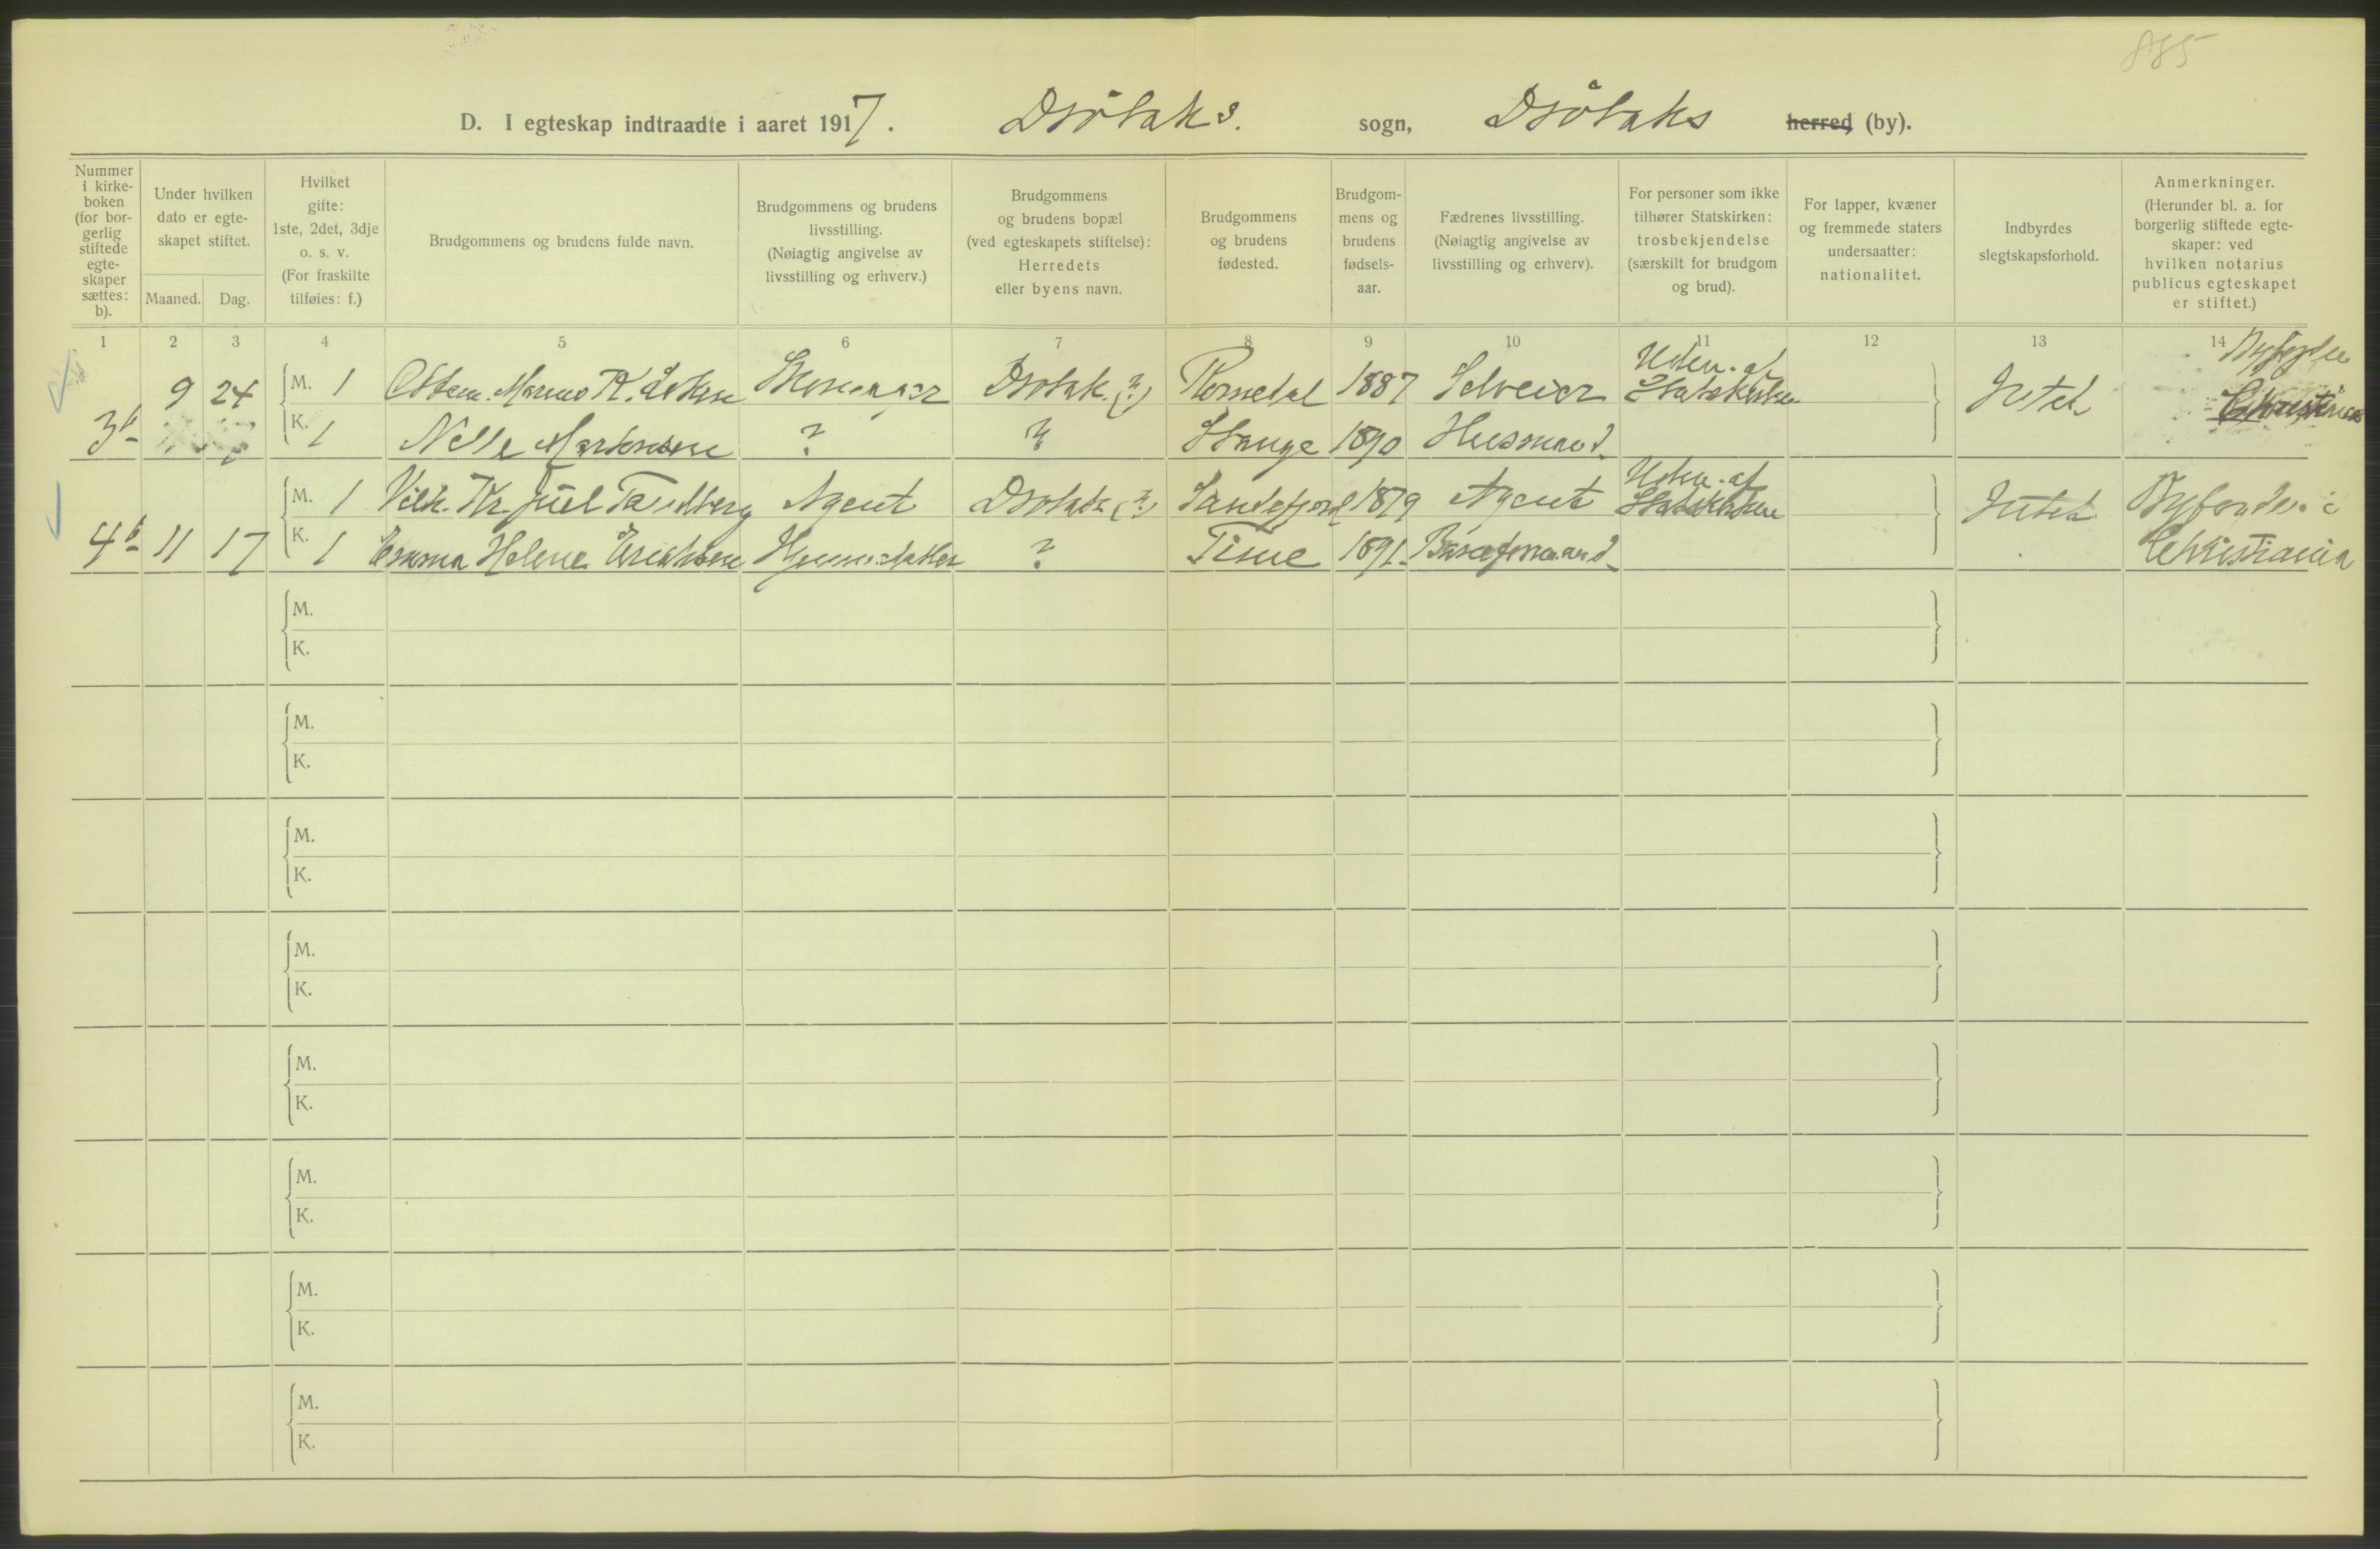 885
D. I egteskap indtraadte i aaret 1917. Drøbaks. sogn, Drøbaks herred (by).
Nummer i kirke-boken (for bor-gerlig stiftede egte-skaper sættes: b).
Under hvilken dato er egte-skapet stiftet.
Maaned. Dag.
Hvilket gifte: 1ste, 2det, 3dje o. s. v. (For fraskilte tilføies: f.)
Brudgommens og brudens fulde navn.
Brudgommens og brudens livsstilling. (Nøiagtig angivelse av livsstilling og erhverv.)
Brudgommens og brudens bopæl (ved egteskapets stiftelse): Herredets eller byens navn.
Brudgommens og brudens fødested.
Brudgom-mens og brudens fødsels-aar.
Fædrenes livsstilling. (Nøiagtig angivelse av livsstilling og erhverv).
For personer som ikke tilhører Statskirken: trosbekjendelse (særskilt for brudgom og brud).
For lapper, kvæner og fremmede staters undersaatter: nationalitet.
Indbyrdes slegtskapsforhold.
Anmerkninger. (Herunder bl. a. for borgerlig stiftede egte-skaper: ved hvilken notarius publicus egteskapet er stiftet.)
1 2 3 4 5 6 7 8 9 10 11 12 13 14
9 24 M. 1 Marius Drøbak (?) 1887 Selveier Uden. af Statskirken Intet
3 b K. 1 ? ? Stange 1890 Husmand Christiania
M. 1 Vilh. Kr Juel Tandberg Agent Drøbak (?) Sandefjord 1879 Agent Uden. af Statskirken Intet Byfogden i
4 b 11 17 K. 1 Emma Helene Erichsen ? 1891 Christiania
M.
K.
M.
K.
M.
K.
M.
K.
M.
K.
M.
K.
M.
K.
M.
K.